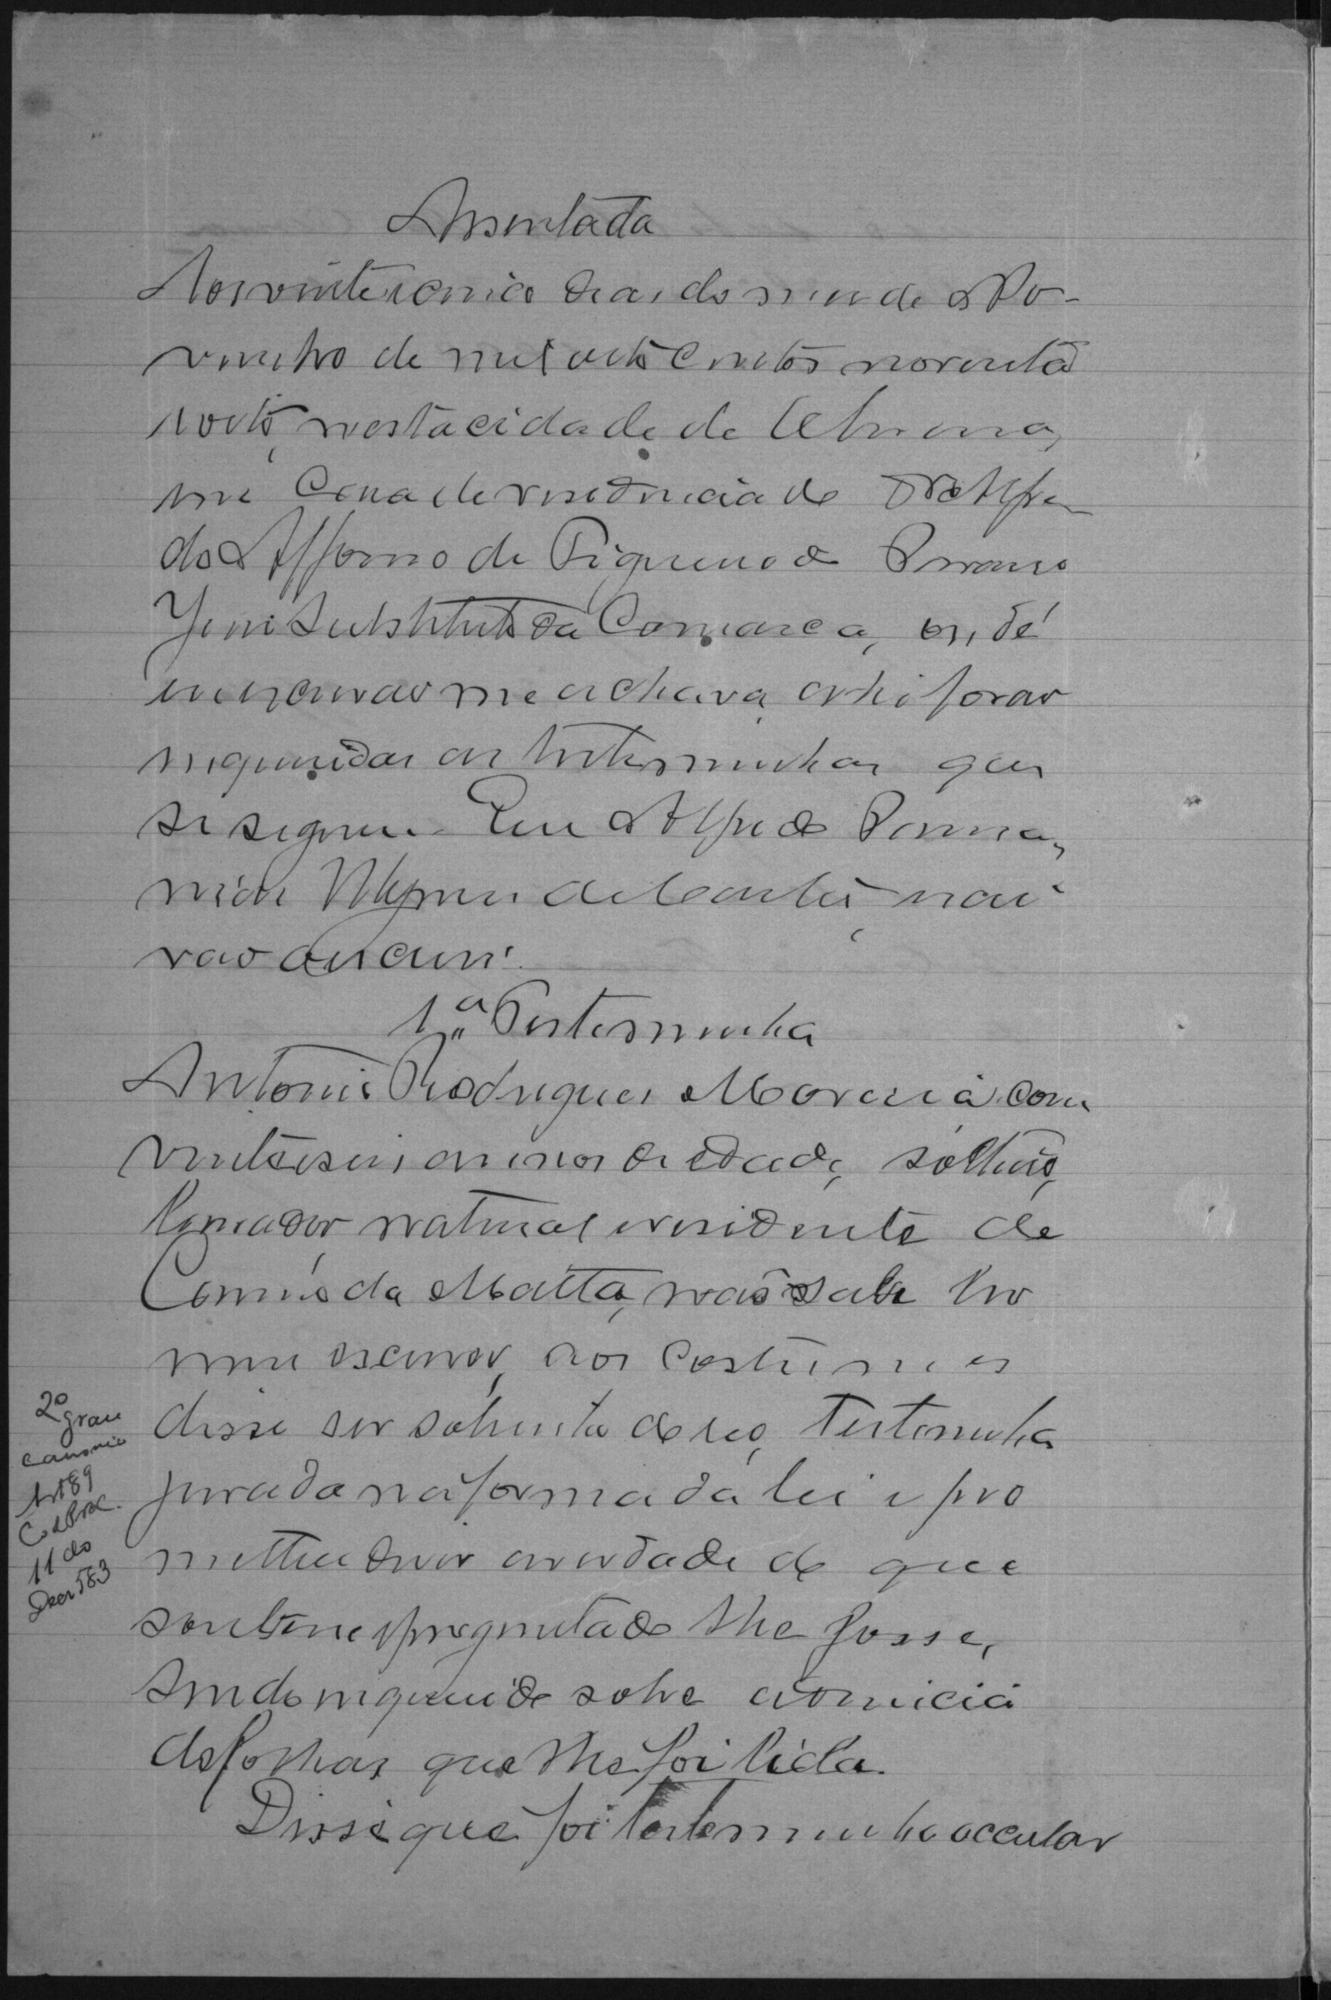 Assentada
Aos vinte e cinco dias do mes de No-
vembro de mil oito centos noventa
e oito, nesta cidade de
em casa de residencia do Dr Alfre
do Affonso de
Juiz Substituto da Comarca, onde
escrivão me achava, ahi forão
inqueridas as testemunhas que
se seguem. Eu Alfredo
escri
vão escrevi.
1ª Testemunha
Antonio Rodrigues Moreira com
vinte seis annos de edade, solteiro,
natural e residente de
da Matta, não sabe ler
nem escrever, aos costumes
disse ser sobrinho do reo, Testemunha
jurada na forma da lei e pro
metteu dizer a verdade do que
soubesse e preguntado lhe fosse,
sendo inquerido sobre a denuncia
de folhas que lhe foi lida.
Disse que foi testemunha occular
2º
grau
canonico
Art 89
Cod Proc.
11 do
Decr 583